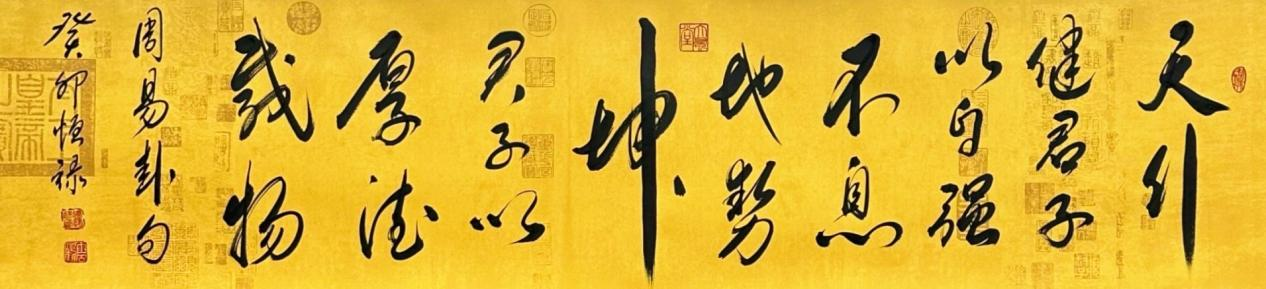 天行
健君子
以自强
不息
地势
坤
君子以
厚德
载物
周易卦句
癸卯恒禄